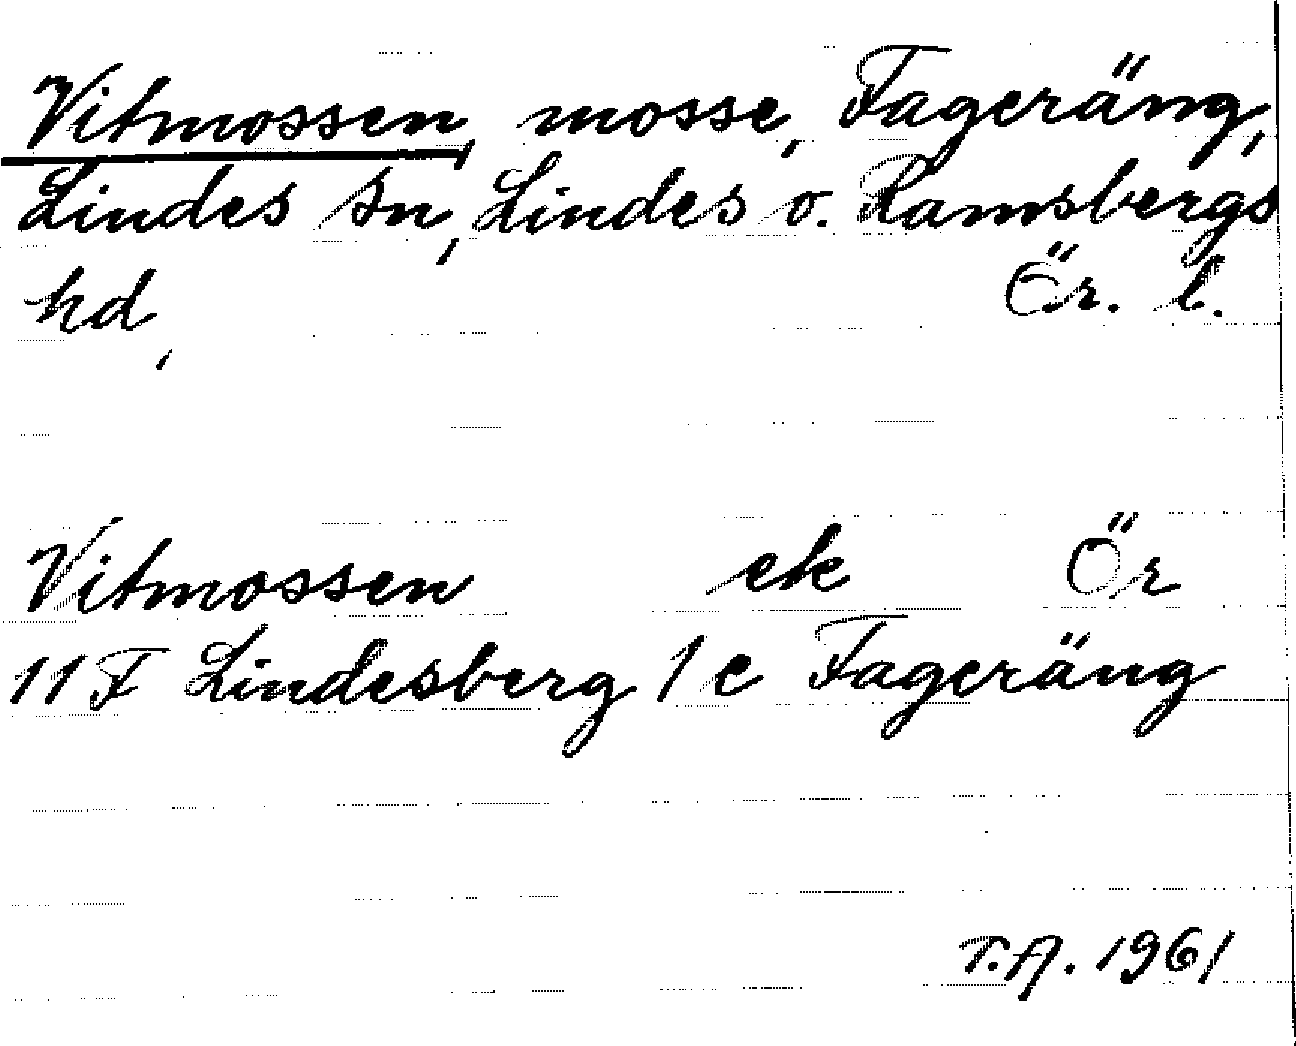 Vitmossen, mosse, Fageräng,
Lindes sn, Lindes o. Ramsbergs
hd, Ör. l.
Vitmossen ek Ör
11F Lindesberg 1 c Fageräng
T.A. 1961